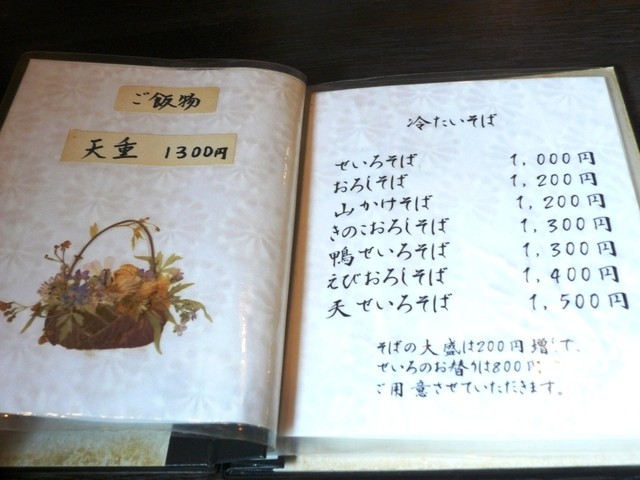 ご飯物
天重 1300円
冷たいそば
せいろそば 1,000円
おろしそば 1,200円
山かけそば 1,200円
きのこおろしそば 1,300円
鴨せいろそば 1,300円
えびおろしそば 1,400円
天せいろそば 1,500円
そばの大盛は200円増しで、
せいろのお替りは800円で
ご用意させていただきます。